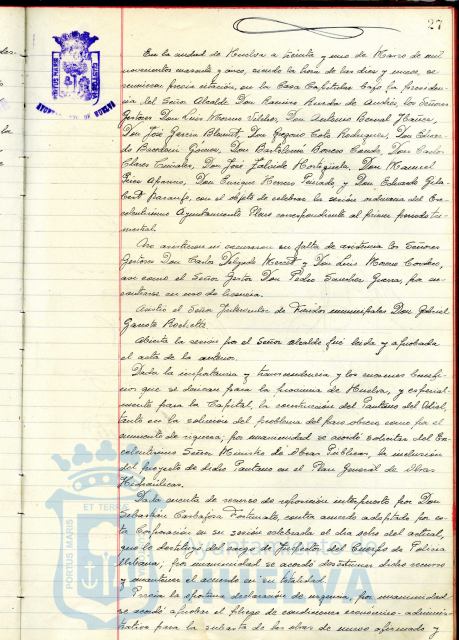 27
En la ciudad de Huelva a treinta y uno de Marzo de mil
novecientos cuarenta y cinco, siendo la hora de las diez y nueve, se
reunieron previa citación, en la Casa Capitular bajo la presiden-
cia del Señor Alcalde Don Ramiro Rueda de Andrés, los Señores
Gestores Don Luis Moreno Don Antonio Bernal
Don José García Don Gregorio Coto Rodríguez, Don
Gómez, Don Bartolomé Borrero Conde, Don Carlos
Don José Don Manuel
Pérez Don Enrique Herrero y Don Eduardo
con el objeto de celebrar la sesión ordinaria del Ex-
celentísimo Ayuntamiento Pleno correspondiente al primer periodo tri-
mestral.
No asistieron ni excusaron su falta de asistencia los Señores
Gestores Don Carlos Delgado y Don Luis Mora
así como el Señor Gestor Don Pedro Sánchez Guerra, por en-
contrarse en uso de licencia.
Asistió el Señor Interventor de Fondos municipales Don Gabriel
Abierta la sesión por el Señor Alcalde fué leída y aprobada
el acta de la anterior.
Dada la importancia y transcendencia y los enormes benefi-
cios que se derivan para la provincia de Huelva, y especial-
mente para la Capital, la construcción del Pantano del Odiel,
tanto en la solución del problema del paro obrero como por el
aumento de riqueza; por unanimidad se acordó solicitar del Ex-
celentísimo Señor Ministro de Obras Públicas, la inclusión
del proyecto de dicho Pantano en el Plan General de Obras
Hidráulicas.
Dada cuenta de recurso de reposición interpuesto por Don
Sebastián Carbajosa Fortunato, contra acuerdo adoptado por es-
ta Corporación en su sesión celebrada el día ocho del actual,
que lo destituyó del cargo de Inspector del Cuerpo de Policía
Urbana; por unanimidad se acordó desestimar dicho recurso
y mantener el acuerdo en su totalidad.
Previa la oportuna declaración de urgencia, por unanimidad
se acordó aprobar el pliego de condiciones económico-adminis-
trativas para la subasta de las obras de nuevo afirmado y